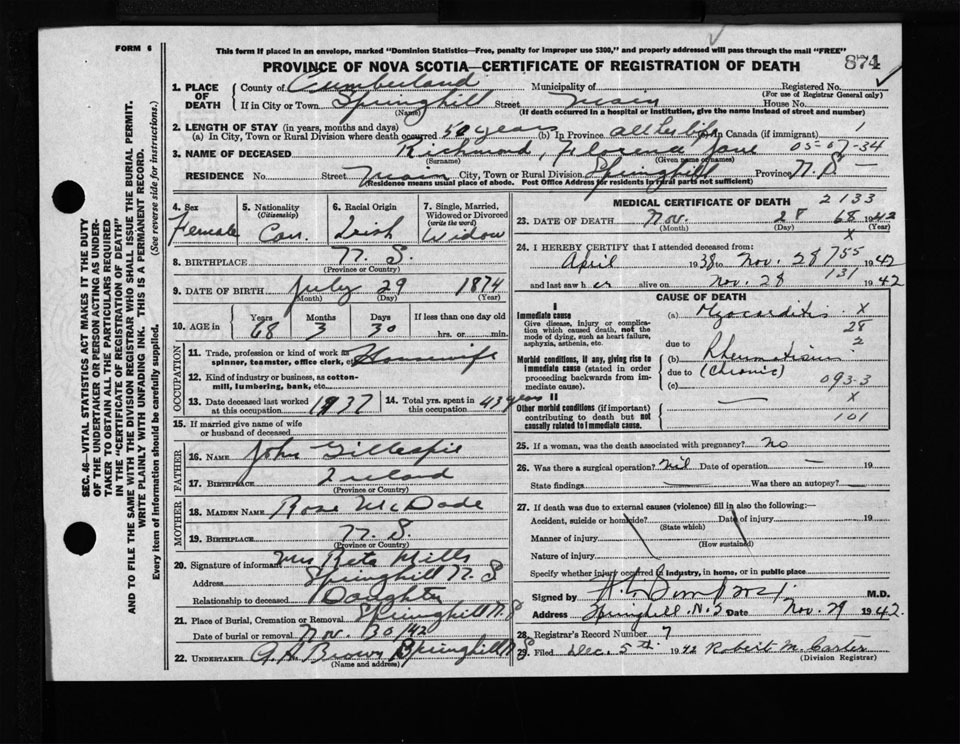 FORM 6
This form if placed in an envelope, marked "Dominion Statistics—Free, penalty for improper use $300," and properly addressed will pass through the mail "FREE"
PROVINCE OF NOVA SCOTIA—CERTIFICATE OF REGISTRATION OF DEATH
874
1. PLACE OF DEATH
County of Cumberland Municipality of Registered No.
(For use of Registrar General only)
If in City or Town Springhill Street Main House No.
(Name) (If death occurred in a hospital or institution, give the name instead of street and number)
2. LENGTH OF STAY (in years, months and days)
(a) In City, Town or Rural Division where death occurred 50 years (b) In Province all her life In Canada (if immigrant)
3. NAME OF DECEASED Richmond, Florence Jane 05-07-34
(Surname) (Given name or names)
RESIDENCE No. Street Main City, Town or Rural Division Springhill Province N. S. —
(Residence means usual place of abode. Post Office Address for residents in rural parts not sufficient)
4. Sex Female
5. Nationality (Citizenship) Can.
6. Racial Origin Irish
7. Single, Married, Widowed or Divorced (write the word) Widow
8. BIRTHPLACE N. S.
(Province or Country)
9. DATE OF BIRTH July 29 1874
(Month) (Day) (Year)
10. AGE in Years Months Days If less than one day old
68 3 30 hrs. or min.
OCCUPATION
11. Trade, profession or kind of work as spinner, teamster, office clerk, etc. Housewife
12. Kind of industry or business, as cotton-mill, lumbering, bank, etc.
13. Date deceased last worked at this occupation 1937
14. Total yrs. spent in this occupation 43 years
15. If married give name of wife or husband of deceased
FATHER
16. NAME John Gillespie
17. BIRTHPLACE Ireland
(Province or Country)
MOTHER
18. MAIDEN NAME Rose McDade
19. BIRTHPLACE N. S.
(Province or Country)
20. Signature of informant Mrs Reta Mills
Address Springhill N. S
Relationship to deceased Daughter
21. Place of Burial, Cremation or Removal Springhill N.S
Date of burial or removal Nov. 30/42
22. UNDERTAKER G. H. Brown Springhill N.S
(Name and address)
MEDICAL CERTIFICATE OF DEATH 2133
23. DATE OF DEATH Nov. 28 68 1942
(Month) (Day) (Year)
X
24. I HEREBY CERTIFY that I attended deceased from:
April 1938 to Nov. 28 755 1942
131
and last saw h er alive on Nov. 28 1942
CAUSE OF DEATH
I
Immediate cause (a) Myocarditis X
Give disease, injury or complication which caused death, not the mode of dying, such as heart failure, asphyxia, asthenia, etc.
28
due to 2
Morbid conditions, if any, giving rise to immediate cause (stated in order proceeding backwards from immediate cause). (b) Rheumatism
due to (Chronic)
(c) 093-3
II
Other morbid conditions (if important) contributing to death but not causally related to immediate cause. — X
101
25. If a woman, was the death associated with pregnancy? no
26. Was there a surgical operation? nil Date of operation — 19
State findings Was there an autopsy? —
27. If death was due to external causes (violence) fill in also the following:—
Accident, suicide or homicide? Date of injury 19
(State which)
Manner of injury
(How sustained)
Nature of injury
Specify whether injury occurred in industry, in home, or in public place
Signed by M.D.
Address Springhill. N.S Date Nov. 29 1942.
28. Registrar's Record Number 7
29. Filed Dec. 5th. 1942 Robert M. Carter
(Division Registrar)
SEC. 46—VITAL STATISTICS ACT MAKES IT THE DUTY
OF THE UNDERTAKER OR PERSON ACTING AS UNDER-
TAKER TO OBTAIN ALL THE PARTICULARS REQUIRED
IN THE "CERTIFICATE OF REGISTRATION OF DEATH"
AND TO FILE THE SAME WITH THE DIVISION REGISTRAR WHO SHALL ISSUE THE BURIAL PERMIT.
WRITE PLAINLY WITH UNFADING INK. THIS IS A PERMANENT RECORD.
Every item of information should be carefully supplied. (See reverse side for instructions.)